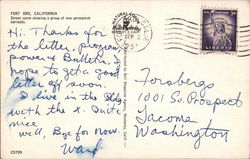 FORT ORD, CALIFORNIA
Street scene showing a group of new permanent
barracks.
Hi. Thanks for
the letter, program
power & Bulletin. I
hope to get a good
letter off soon.
I live in the Bldg
with the X. Quite
nice
well, Bye for Now
Ward
C5709
CALIF
SEP
195
LIBERTY
Forsbergs
1001 So. Prospect
Tacoma
Washington